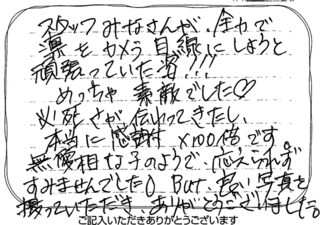 スタッフみなさんが、全力で
凛をカメラ目線にしようと
頑張っていた姿!!!
めっちゃ素敵でした♡
必死さが伝わってきたし、
本当に感謝 ×100倍です。
無愛想な子のようで、応えられず
すみませんでした() But、良い写真を
撮っていただき、ありがとうございました。
ご記入いただきありがとうございます